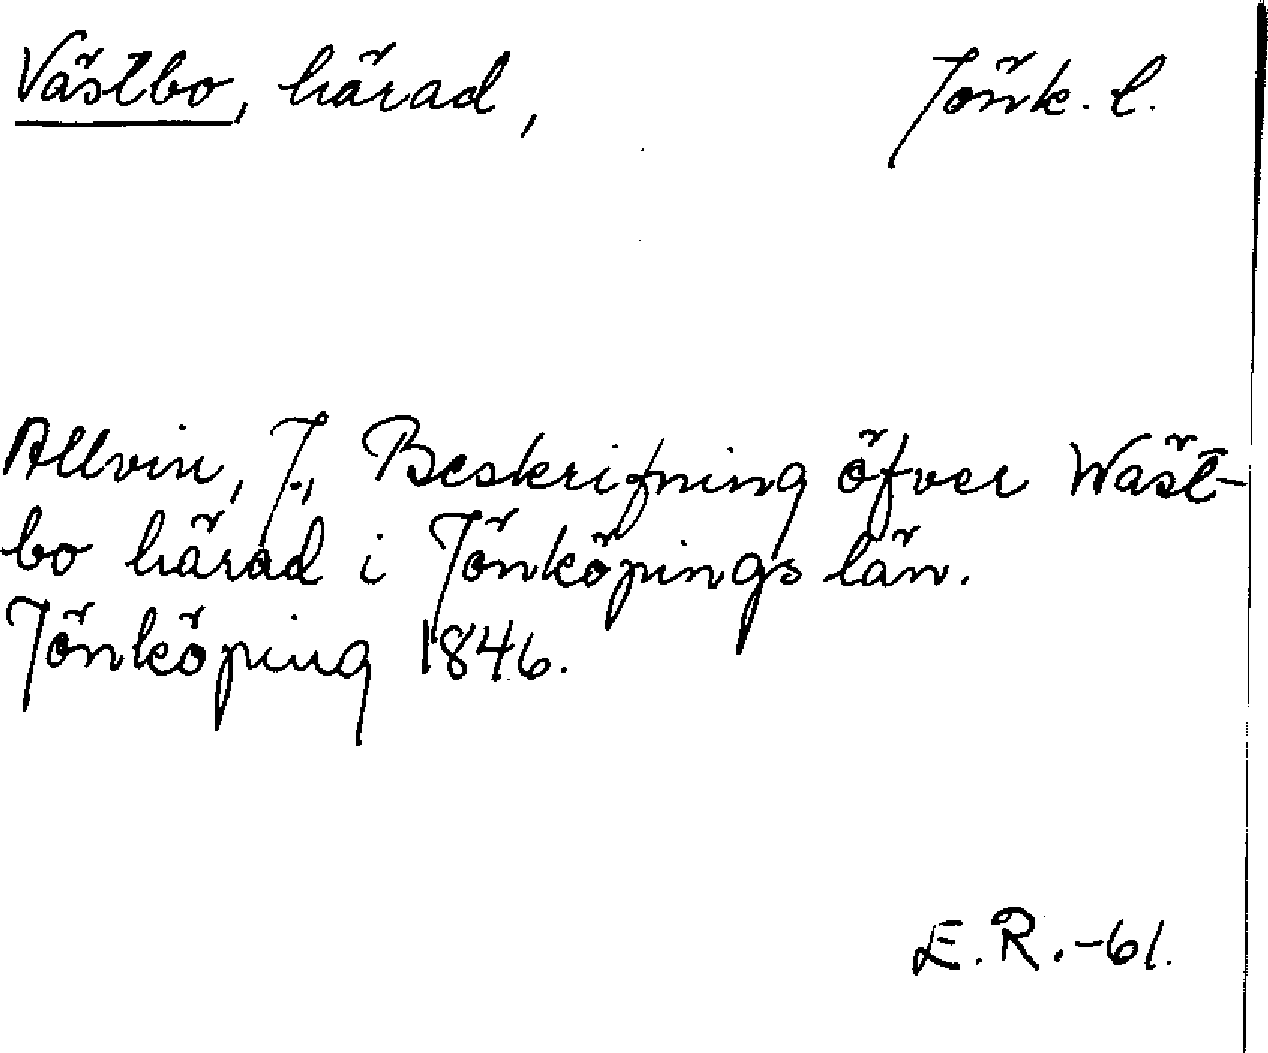 Västbo, härad, Jönk. l.
Allvin, J., Beskrifning öfver Wäst-
bo härad i Jönköpings län.
Jönköping 1846.
E.R.-61.